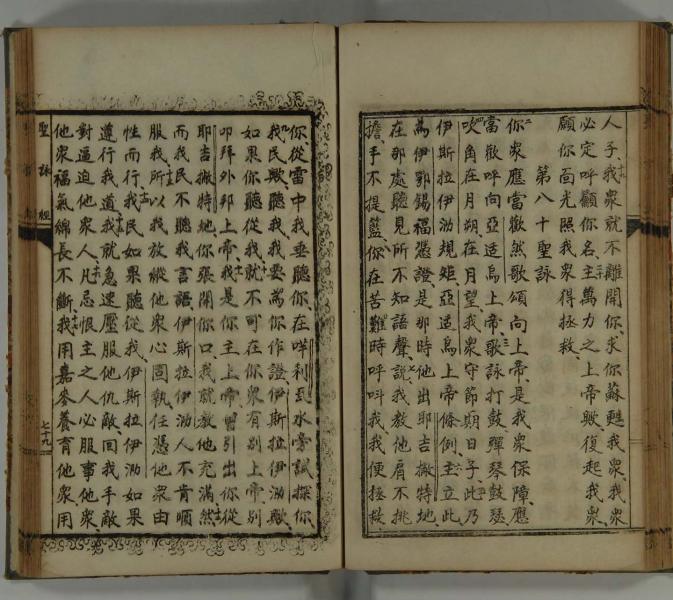 人子我衆就不離開你求你蘇甦我衆我衆
必定呼顧你名主萬力之上帝歟復起我衆
願你面光照我衆得拯救
第八十聖詠
你衆應當歡然歌頌向上帝是我衆保障應
當歡呼向亞适烏上帝歌詠打鼓彈琴鼓瑟
吹角在月朔在月望我衆守節期日子此乃
伊斯拉伊泐規矩亞适烏上帝條例主立此
為伊鄂錫福憑證是那時他出耶吉撇特地
在那處聽見所不知語聲說我教他肩不挑
擔手不提籃你在苦難時呼呌我我便拯救
你從雷中我垂聽你在咩利瓦水旁試探你
我民歟聽我我要為你作證伊斯拉伊泐歟
如果你聽從我就不可在你衆有別上帝别
叩拜外邦上帝我是你主上帝曾引出你從
耶吉撇特地你張開你口我就教他充滿然
而我民不聽我言語伊斯拉伊泐人不肯順
服我所以我放縱他衆心固執任憑他衆由
性而行我民如果聽從我伊斯拉伊泐如果
遵行我道我就急速壓服他仇敵回我手敵
對逼迫他衆人凡忌恨主之人必服事他衆
他衆福氣綿長不斷我用嘉麥養育他衆用
聖詠經
七十九